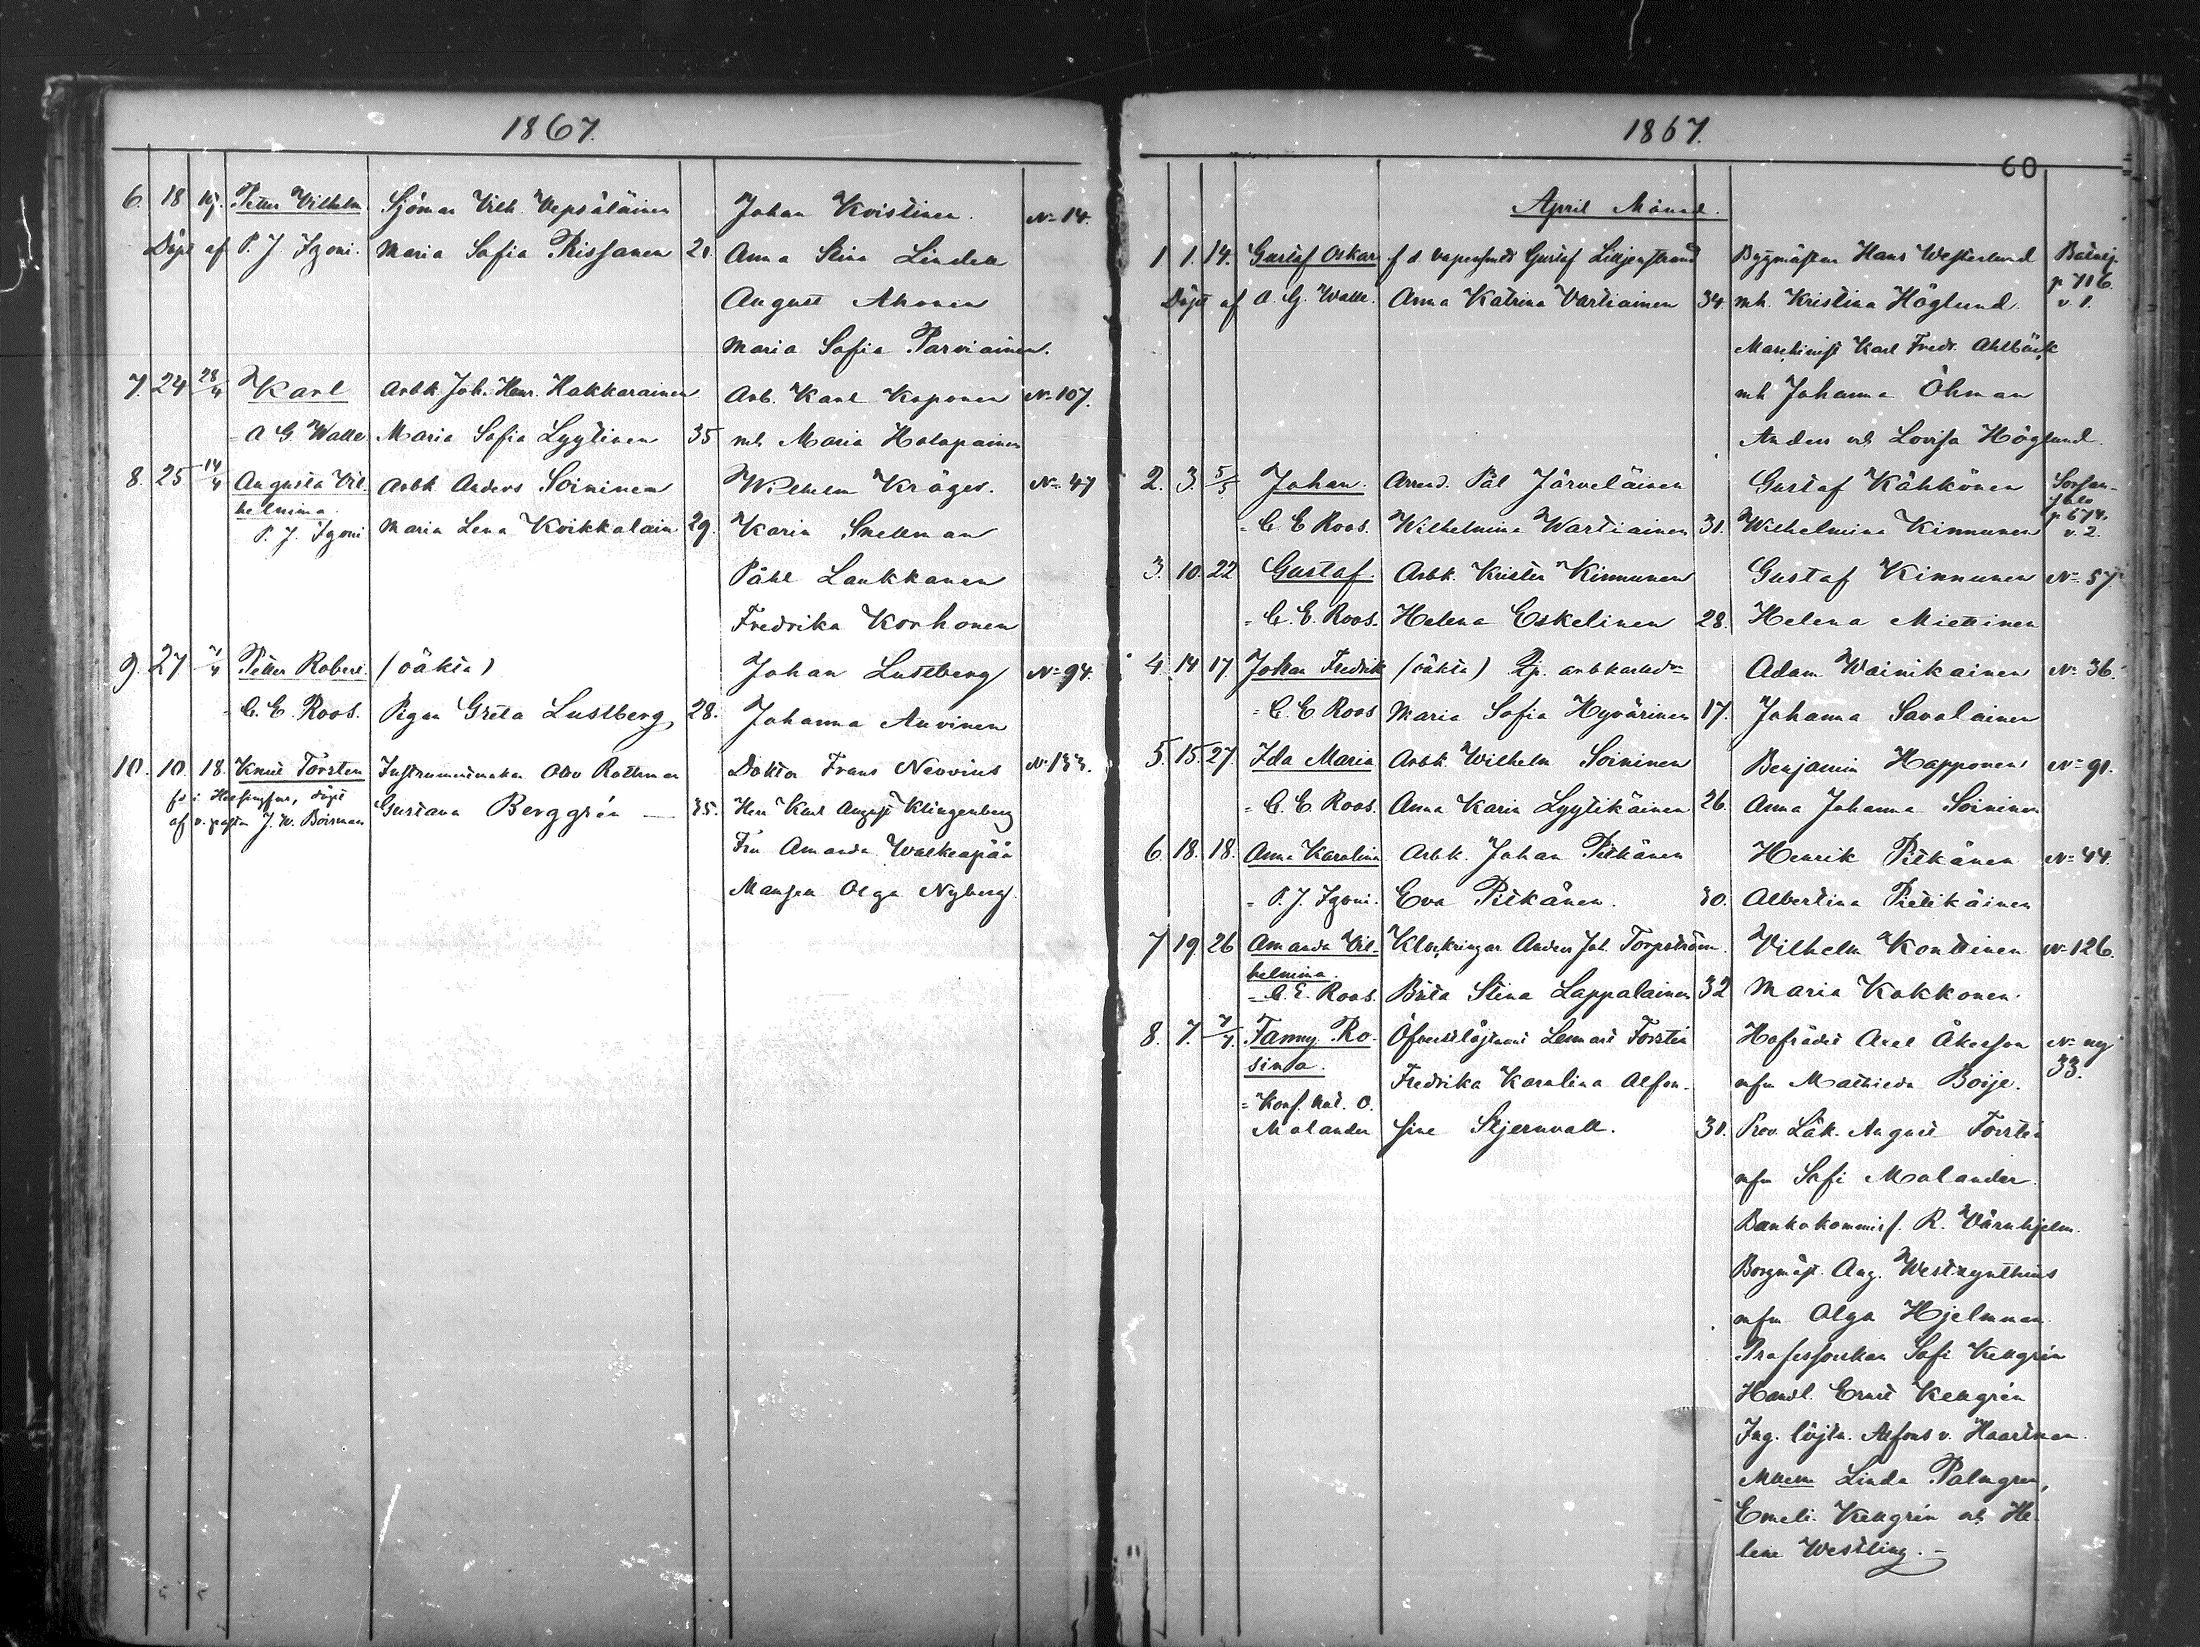 1867.
6. 18 19. Petter Vilhelm Sjöman Vilh. Vepsäläinen Johan Kvistinen. No 14.
Döpt af P. J. Igoni. Maria Sofia Rissanen 21. Anna Stina Linden
August Ahonen
Maria Sofia Parviainen.
7. 24 28/4 Karl Arbk. Joh. Henr. Hakkarainen Arb. Karl Koponen No 107.
- A G. Walle Maria Sofia Lyytinen 35 mh Maria Halapainen
8. 25 14/4 Augusta Vil- Arbk Anders Soininen Wilhelm Kröger. No 47
helmina.
P. J. Igoni Maria Lena Kvikkalain 29. Karin Snellman
Påhl Laukkanen
Fredrika Korhonen
9. 27 7/4 Petter Robert. (oäkta) Johan Lustberg No 94.
- C. E. Roos. Pigan Greta Lustberg 28. Johanna Auvinen
10. 10. 18. Knut Torsten Instrumentmakar Otto Rothman Doktor Frans Neovius No 133.
fö i Helsingfors, döpt Gustava Berggrén — 35. Herr Karl August Klingenberg
af v. pastor J. W. Boisman
Fru Amanda Walkeapää
Mamsell Olga Nyberg.
1867.
60
April Månad.
1 1. 14. Gustaf Oskar f d vapensmed Gustaf Liljenstrand Byggmästar Hans Westerlund Bälvej.
p 716
v 1.
Döpt af A. G. Walle. Anna Katrina Vartiainen 34. mh. Kristina Höglund.
Maschinist Karl Fredr. Ahlbäck
mh Johanna Öhman
Anders och Lovisa Höglund.
2. 3. 5/5 Johan. Arrend. Pål Järveläinen Gustaf Kähkönen Sorsan-
salo
p 674.
v. 2.
- C E Roos. Wilhelmina Wartiainen 31. Wilhelmina Kinnunen
3. 10. 22 Gustaf. Arbk. Krister Kinnunen Gustaf Kinnunen No 57.
- C. E. Roos. Helena Eskelinen 28. Helena Miettinen
4. 14 17. Johan Fredrik (oäkta) Adam Wainikainen No 36.
- C. E Roos Maria Sofia Hyvärinen 17. Johanna Savolainen
5. 15. 27. Ida Maria Arbk. Wilhelm Soininen Benjamin Happonen No 91.
- C. E Roos. Anna Karin Lyytikäinen 26. Anna Johanna Soininen
6. 18. 18. Anna Karolina Arbk. Johan Pitkänen Henrik Pitkänen No 44.
- P. J. Igoni. Eva Pitkänen. 30. Albertina Pietikäinen
7 19 26 Amanda Vil- Klockringar Anders Joh. Torpström. Vilhelm Konttinen No 126.
helmina.
- C. E. Roos. Brita Stina Lappalainen 32 Maria Kokkonen.
8. 7. 7/7. Fanny Ro- Öfverstlöjtnant Lennart Forstén Hofrådet Axel Åkerson No ny
33.
sina. Fredrika Karolina Alfon- mfru Mathilda Boije.
- Konf. Aud. O.
Molander sine Stjernvall. 31. Prov. Läk. August Forstén
mfru Sofi Molander.
Bankokommiss. R. Wärnhjelm.
Borgmäst. Aug. Westzynthius
mfru Olga Hjelmman
Professorskan Sofi Kellgrén
Handl. Ernst Kellgrén
Ing. löjtn. Alfons v. Haartman.
Mllern Linda Palmgren,
Emeli Kellgrén och He-
lene Westling. —